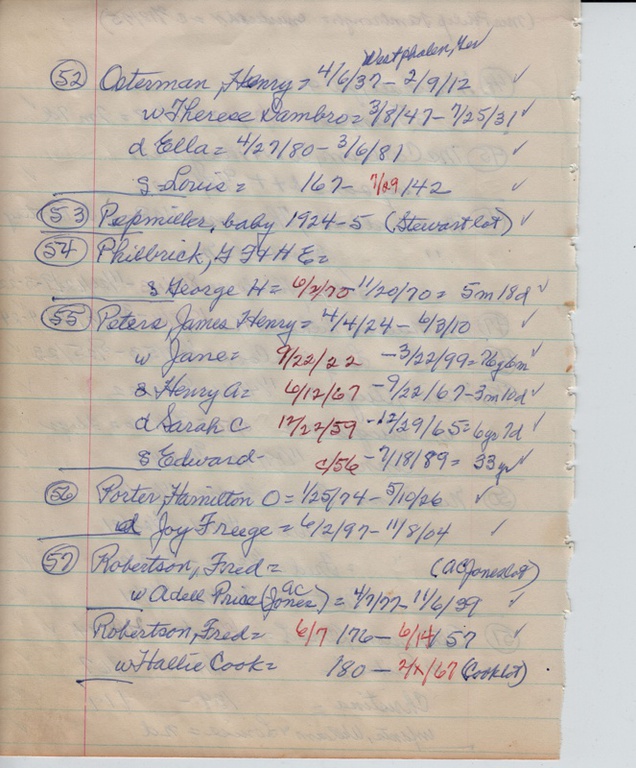 Westphalen, Ger
52 Osterman, Henry = 4/6/37 - 2/9/12 ✓
w Therese Dambro = 3/8/47 - 7/25/31 ✓
d Ella = 4/27/80 - 3/6/81 ✓
s Louis = 167 - 7/29/42 ✓
53 Pepmiller, baby 1924-5 (Stewart lot) ✓
54 Philbrick, G F & H E =
s George H = 6/2/70 11/20/70 = 5m 18d ✓
55 Peters, James Henry = 4/4/24 - 6/3/10 ✓
w Jane = 9/22/22 - 3/22/99 = 76y6m ✓
s Henry A = 6/12/67 - 9/22/67 - 3m 10d ✓
d Sarah C 12/22/59 - 12/29/65 = 6yr 7d ✓
s Edward - c/56 - 7/18/89 = 33 yr ✓
56 Porter, Hamilton O = 1/25/74 - 5/10/26 ✓
d Joy Freege = 6/2/97 - 11/8/04 ✓
57 Robertson, Fred = (AC Jones lot)
w Adell Price (AC Jones) = 4/7/77 - 11/6/39 ✓
Robertson, Fred = 6/7/76 - 6/14/57 ✓
w Hallie Cook = 180 - 2/x/67 (Cook lot) ✓